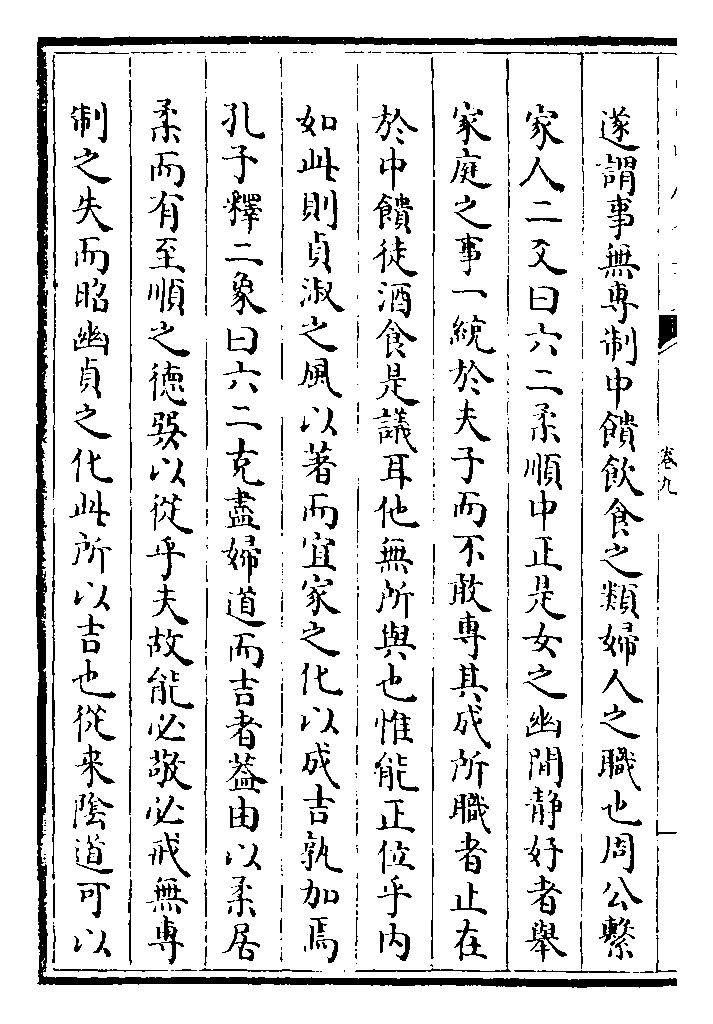 遂謂事無專制中饋飲食之類婦人之職也周公繫
家人二爻曰六二柔順中正是女之幽閒静好者舉
家庭之事一統於夫子而不敢專其成所職者止在
於中饋徒酒食是議耳他無所與也惟能正位乎内
如此則貞淑之風以著而宜家之化以成吉孰加焉
孔子釋二象曰六二克盡婦道而吉者葢由以柔居
柔而有至順之徳巽以從乎夫故能必敬必戒無專
制之失而昭幽貞之化此所以吉也從来隂道可以
卷九